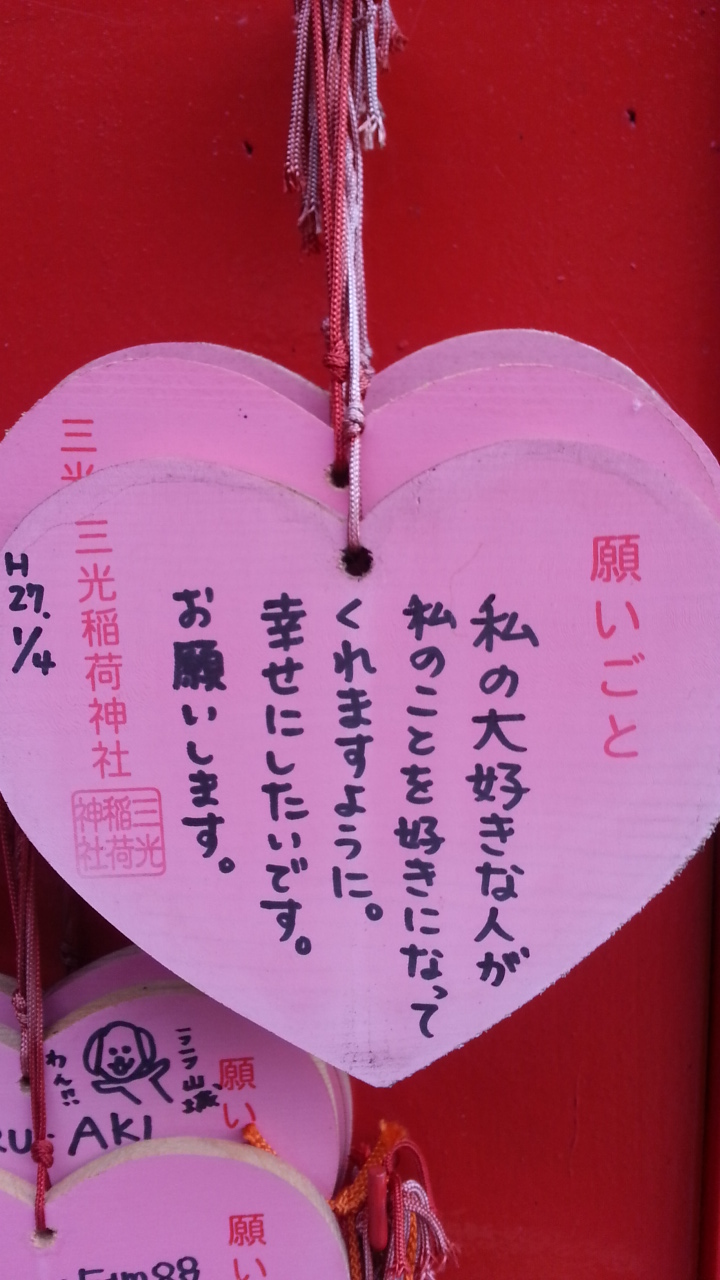 願いごと
私の大好きな人が
私のことを好きになって
くれますように。
幸せにしたいです。
お願いします。
三光稲荷神社
三光
稲荷
神社
H
27.
1/4
三光
願い
わん!!
AKI
願い